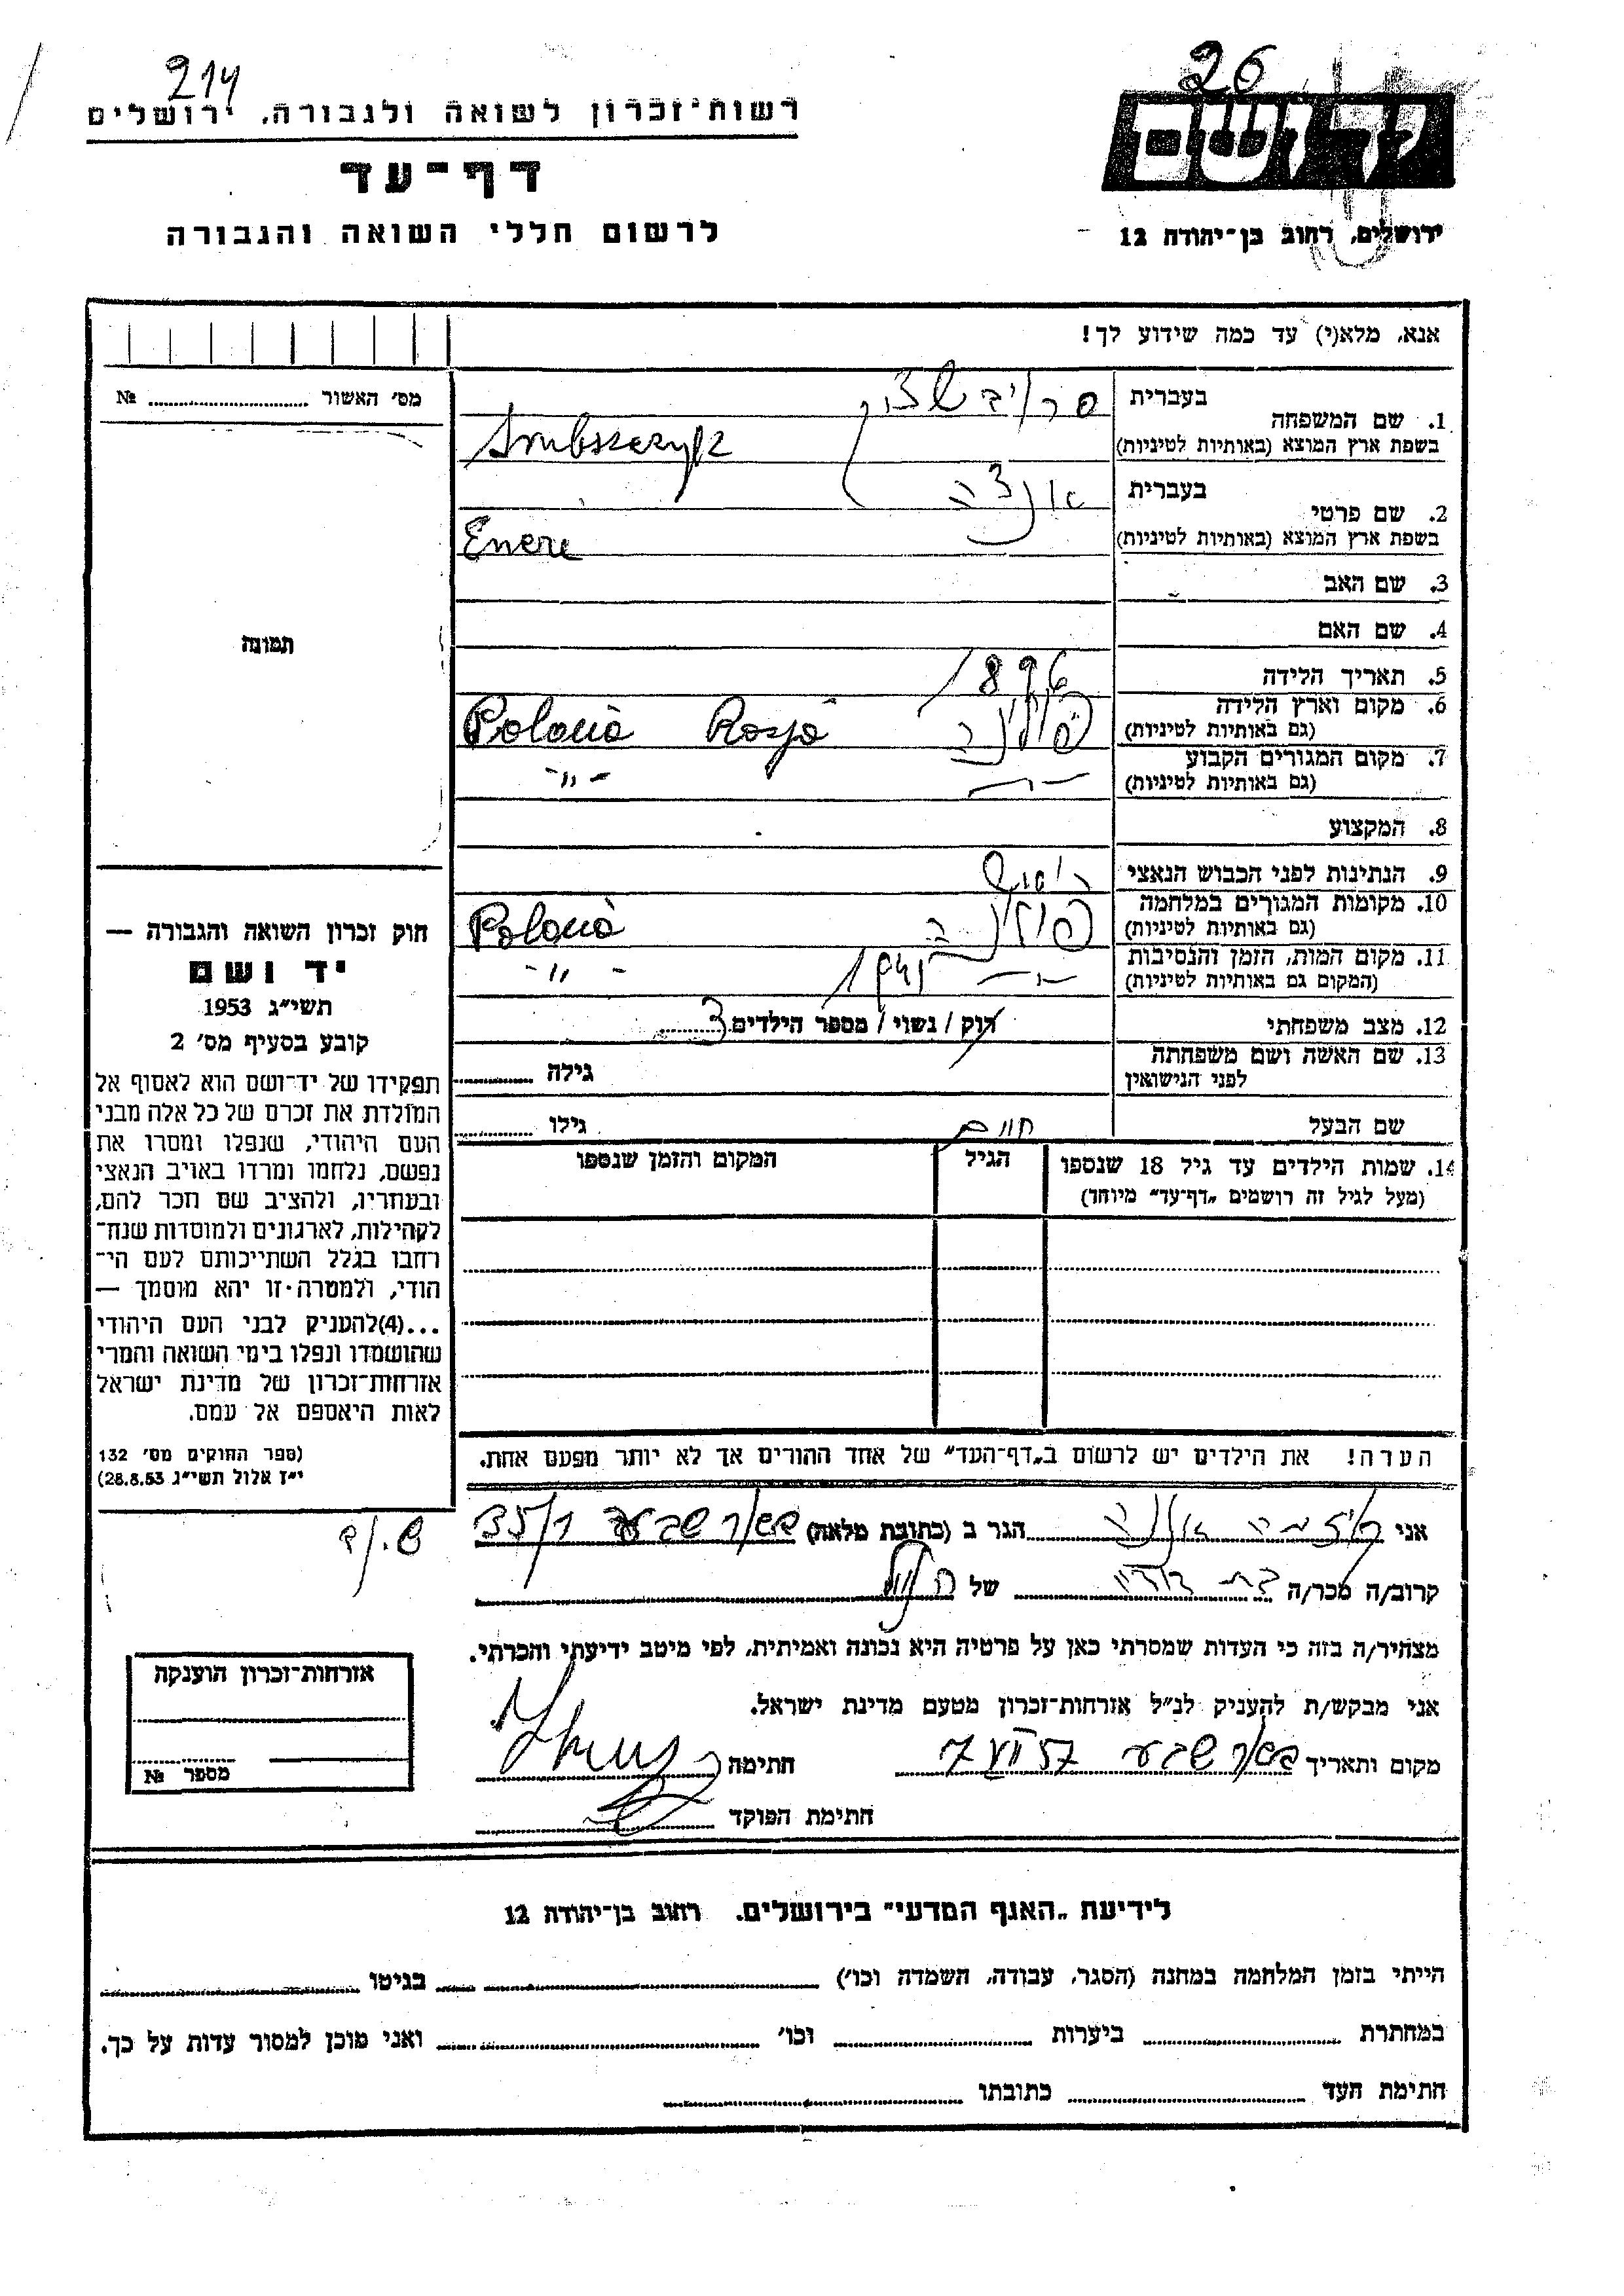 214
26
רשות־זכרון לשואה ולגבורה, ירושלים
ידושם
דף־עד
לרשום חללי השואה והגבורה
ירושלים, רחוב בן־יהודה 12
אנא, מלא(י) עד כמה שידוע לך!
מס׳ האשור № 
1. שם המשפחה
בעברית
בשפת ארץ המוצא (באותיות לטיניות)
2. שם פרטי
בעברית
בשפת ארץ המוצא (באותיות לטיניות)
3. שם האב
4. שם האם
תמונה
5. תאריך הלידה 1896
6. מקום וארץ הלידה פולניה Polonia
(גם באותיות לטיניות)
7. מקום המגורים הקבוע -״- -״-
(גם באותיות לטיניות)
8. המקצוע
9. הנתינות לפני הכבוש הנאצי
10. מקומות המגורים במלחמה פולניה Polonia
(גם באותיות לטיניות)
11. מקום המות, הזמן והנסיבות -״- 1941 -״-
(המקום גם באותיות לטיניות)
12. מצב משפחתי רוק / נשוי / מספר הילדים 3
13. שם האשה ושם משפחתה גילה
לפני הנישואין
שם הבעל חיים גילו
14. שמות הילדים עד גיל 18 שנספו הגיל המקום והזמן שנספו
(מעל לגיל זה רושמים „דף־עד״ מיוחד)
הערה! את הילדים יש לרשום ב„דף־העד״ של אחד ההורים אך לא יותר מפעם אחת.
חוק זכרון השואה והגבורה —
יד ושם
תשי״ג 1953
קובע בסעיף מס׳ 2
תפקידו של יד־ושם הוא לאסוף אל
המולדת את זכרם של כל אלה מבני
העם היהודי, שנפלו ומסרו את
נפשם, נלחמו ומרדו באויב הנאצי
ובעוזריו, ולהציב שם וזכר להם,
לקהילות, לארגונים ולמוסדות שנח־
רחבו בגלל השתייכותם לעם הי־
הודי, ולמטרה זו יהא מוסמך —
...(4)להעניק לבני העם היהודי
שהושמדו ונפלו בימי השואה והמרי
אזרחות־זכרון של מדינת ישראל
לאות היאספם אל עמם.
(ספר החוקים מס׳ 132
י״ז אלול תשי״ג 28.8.53)
אני הגר ב (כתובת מלאה) באר שבע
קרוב/ה מכר/ה בת דודה של
מצהיר/ה בזה כי העדות שמסרתי כאן על פרטיה היא נכונה ואמיתית, לפי מיטב ידיעתי והכרתי.
אני מבקש/ת להעניק לנ״ל אזרחות־זכרון מטעם מדינת ישראל.
מקום ותאריך באר שבע חתימה
חתימת הפוקד
אזרחות־זכרון הוענקה
מספר №
לידיעת „האגף המדעי״ בירושלים, רחוב בן־יהודה 12
הייתי בזמן המלחמה במחנה (הסגר, עבודה, השמדה וכו׳) בגיטו
במחתרת ביערות וכו׳ ואני מוכן למסור עדות על כך.
חתימת העד כתובתו